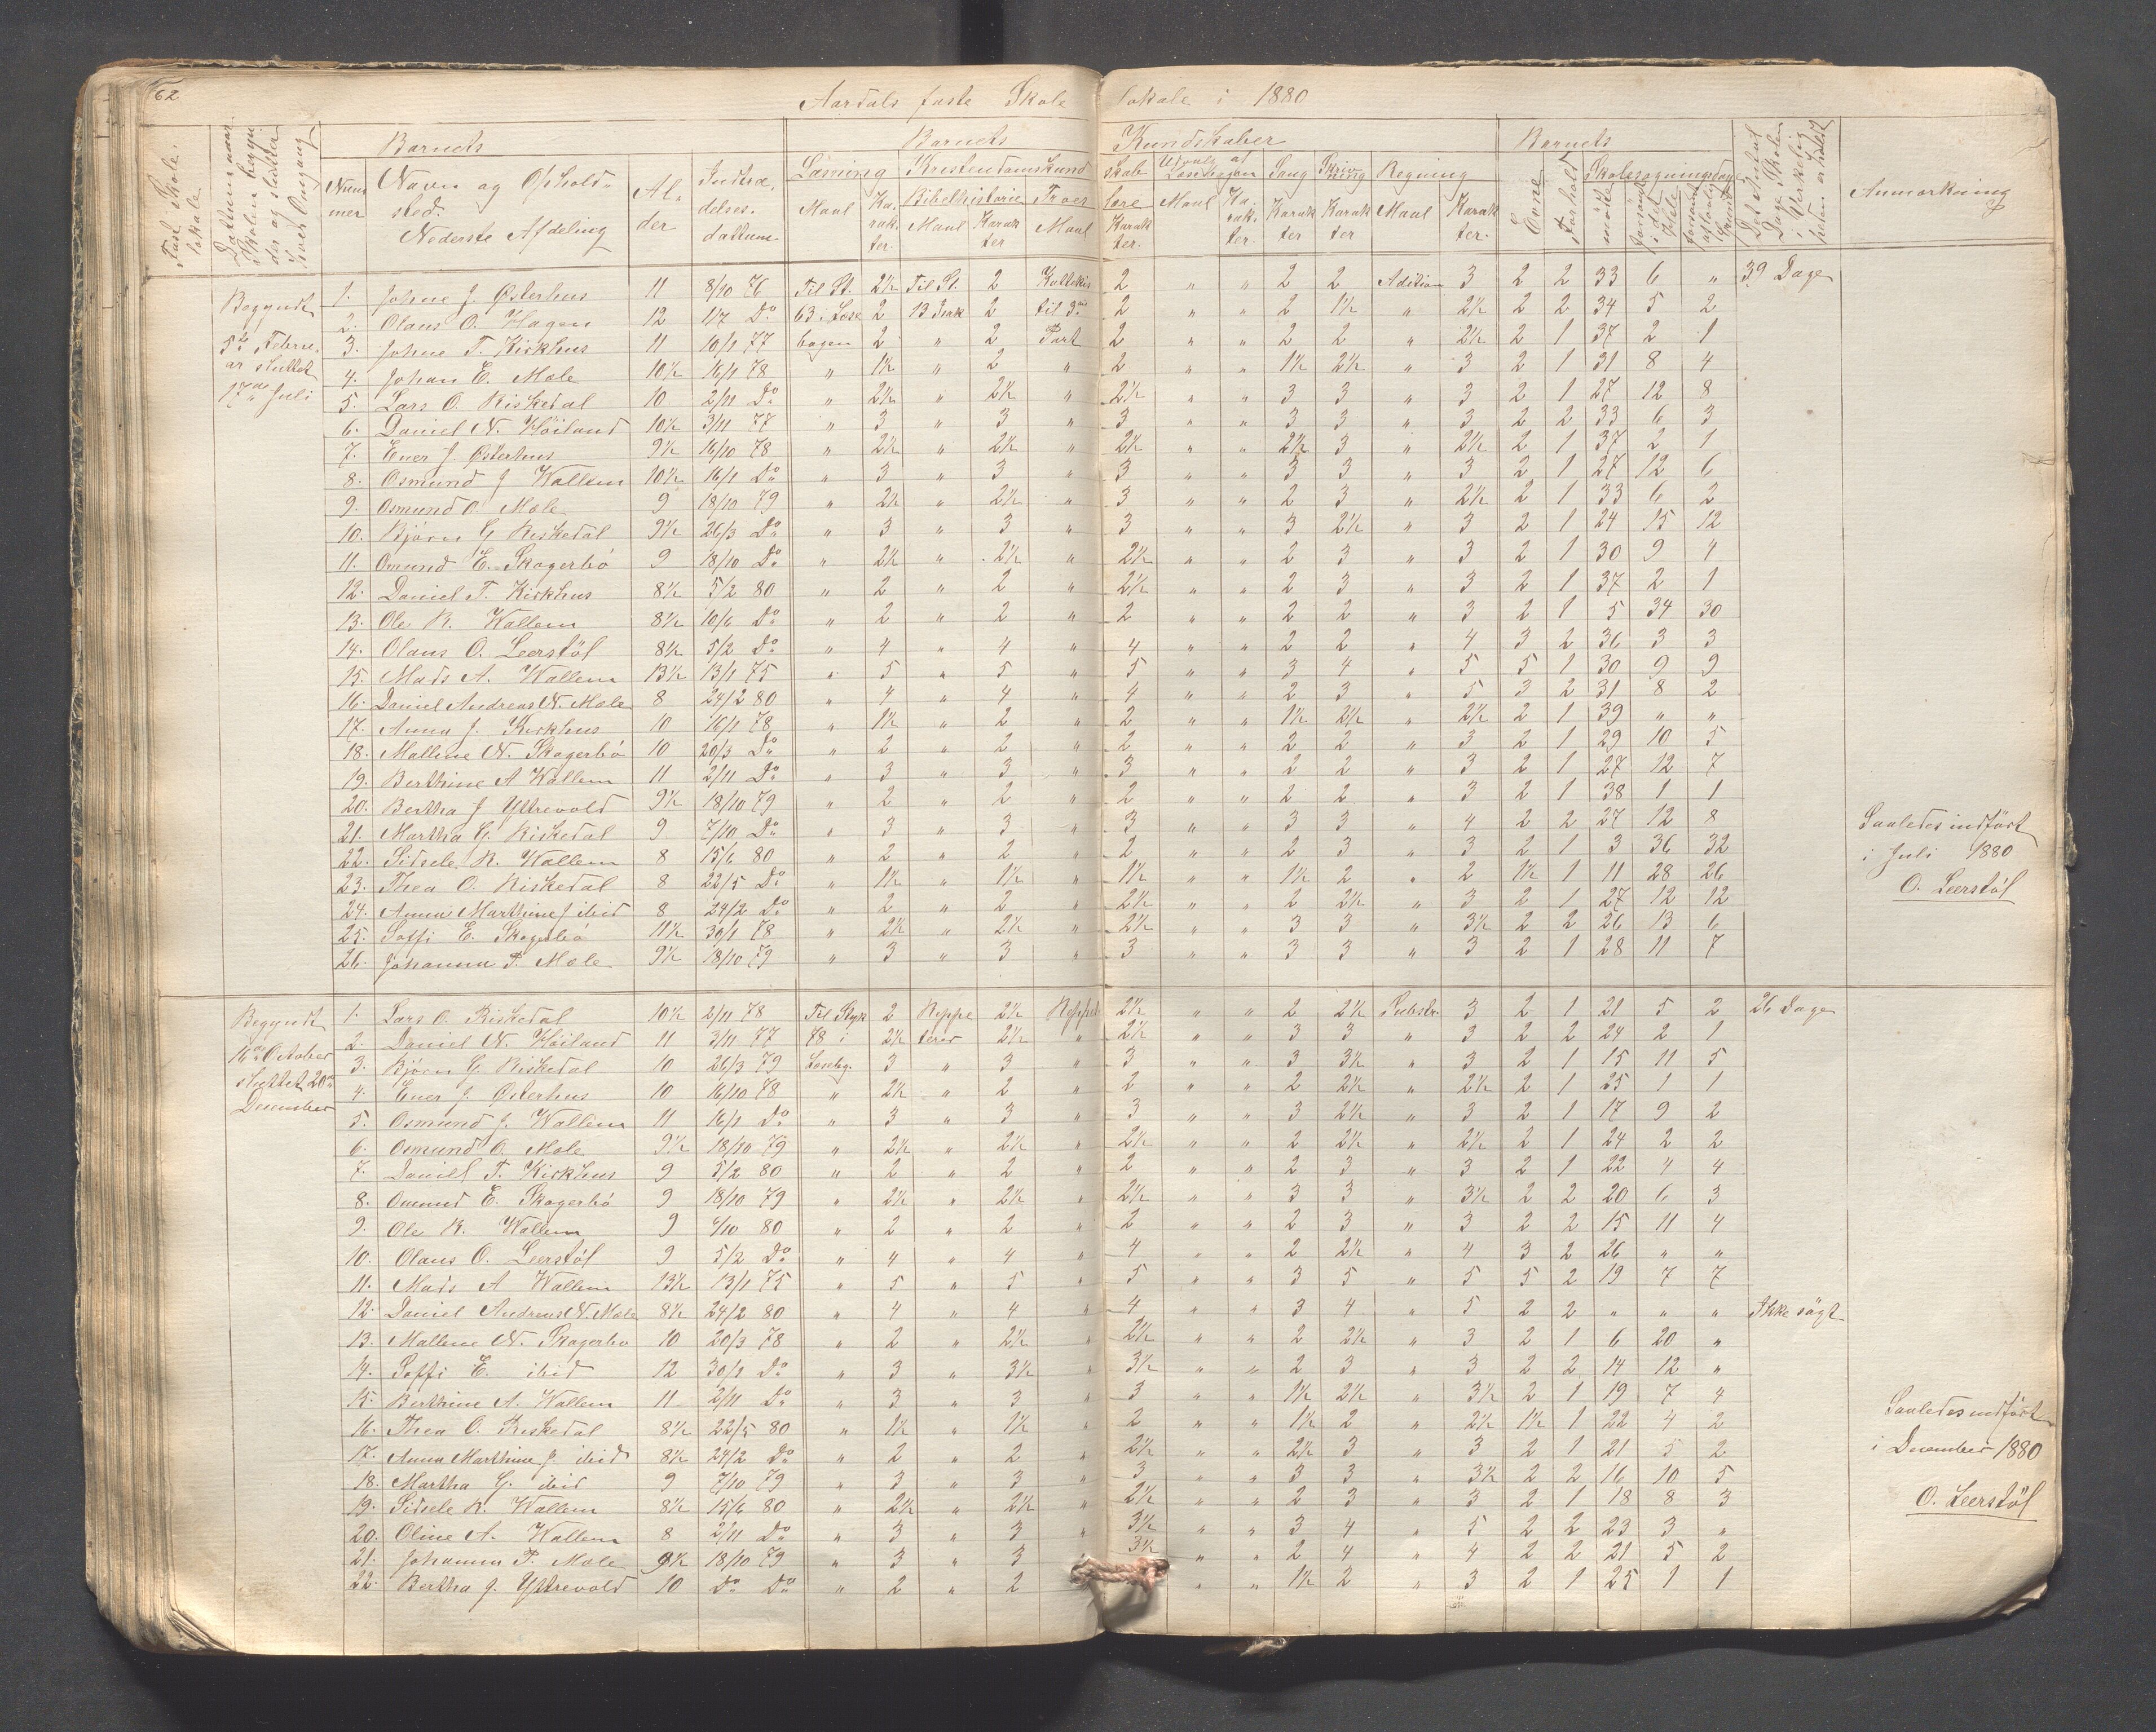 62
Aardals faste Skole lokale i 1880
Fast Skole. lokale
Datum naar Skolen begyn der og slutter hver Omgang
Barnets Barnets Kundskaber Barnets
Num mer
Navn og Ophold- sted. Nederste Afdeling
Al- der
Indtræ- delses- dattum
Læsning Kristendomskund skab Udvalg af Læsebogen Sang Skriv- ning Regning
Bibelhistorie Troes lære
Maal Ka- rak- ter. Maal Karak ter Maal Karak ter. Maal Ka- rak- ter. Karak ter Karak ter Maal Karak ter.
Evne Forhold Skolesøgningsdage
mødte forsømt i det Hele forsømt af lovlig Grund
Det Antal Dage Skolen i Virkelig heden er holdt
Anmærkning
Begyndt 5te Febru- ar sluttet 17de Juli
1. Johne J. Østerhus 11 8/10 76 Til St. 2½ Til St. 2 Kattekis 2 " " 2 2 Adition 3 2 2 33 6 " 39 Dage
2. Olaus O. Hagen 12 1/7 Do 63 i Læse 2 13 Serk 2 til 3die 2 " " 2 1½ " 2½ 2 2 34 5 2
3. Johne T. Kirkhus 11 10/1 77 bogen 2 " 2 Part 2 " " 2 2 " 2½ 2 1 37 2 1
4. Johan E. Mæle 10½ 16/1 78 " 1½ " 2 " 2 " " 1½ 2½ " 3 2 1 31 8 4
5. Lars O. Riskedal 10 2/11 Do " 2½ " 2½ " 2½ " " 3 3 " 3 2 1 27 12 8
6. Daniel N. Höiland 10½ 3/11 77 " 3 " 3 " 3 " " 3 3 " 3 2 2 33 6 3
7. Ener J. Østerhus 9½ 16/10 78 " 2½ " 2½ " 2½ " " 2½ 3 " 2½ 2 1 37 2 1
8. Osmund J Wallem 10½ 16/1 Do " 3 " 3 " 3 " " 3 3 " 3 2 1 27 12 6
9. Osmund O Mæle 9 18/10 79 " 2½ " 2½ " 3 " " 2 3 " 2½ 2 1 33 6 2
10. Bjørn G Riskedal 9½ 26/3 Do " 3 " 3 " 3 " " 3 2½ " 3 2 1 24 15 12
11. Omund E. Skogerbö 9 18/10 Do " 2½ " 2½ " 2½ " " 2 3 " 3 2 1 30 9 4
12. Daniel T. Kirkhus 8½ 5/2 80 " 2 " 2 " 2½ " " 2 3 " 3 2 1 37 2 1
13. Ole R. Wallem 8½ 10/6 Do " 2 " 2 " 2 " " 2 2 " 3 2 1 5 34 30
14. Olaus O. Leerstöl 8½ 5/2 Do " 4 " 4 " 4 " " 2 2 " 4 3 2 36 3 3
15. Mads A. Wallem 13½ 13/1 75 " 5 " 5 " 5 " " 3 4 " 5 5 1 30 9 9
16. Daniel Andreas N. Mæle 8 24/2 80 " 4 " 4 " 4 " " 2 3 " 5 3 2 31 8 2
17. Anna J. Kirkhus 10 16/1 78 " 1½ " 2 " 2 " " 1½ 2½ " 2½ 2 1 39 " "
18. Mallene N. Skogerbö 10 20/3 Do " 2 " 2 " 2 " " 2 2 " 3 2 1 29 10 5
19. Berthine A Wallem 11 2/11 Do " 3 " 3 " 3 " " 2 2 " 3 2 1 27 12 7
20. Bertha J Yttrevold 9½ 18/10 79 " 2 " 2 " 2 " " 2 2 " 3 2 1 38 1 1
21. Martha G. Riskedal 9 7/10 Do " 3 " 3 " 3 " " 3 3 " 4 2 2 27 12 8
22. Sidsele R. Wallem 8 15/6 80 " 2 " 2 " 2 " " 2 3 " 3 2 1 3 36 32
23. Thea O. Riskedal 8 22/5 Do " 1½ " 1½ " 1½ " " 1½ 2 " 2 1½ 1 11 28 26
24. Anna Marthine J ibid 8 24/2 Do " 2 " 2 " 2½ " " 2 2½ " 3 2 1 27 12 12
25. Soffi E. Skogerbö 11½ 30/1 78 " 2½ " 2½ " 2½ " " 3 3 " 3½ 2 2 26 13 6
26. Johanna P. Mæle 9½ 18/10 79 " 3 " 3 " 3 " " 3 3 " 3 2 1 28 11 7
Saaledes indført
i Juli 1880
O. Leerstöl
Begyndt 16de October sluttet 20de December
1. Lars O. Riskedal 10½ 2/11 78 Til Styk 2 Reppe 2½ Reppet 2½ " " 2 2½ Substr. 3 2 1 21 5 2 26 Dage
2. Daniel N. Höiland 11 3/11 77 78 i 2½ terer 2½ " 2½ " " 3 3 " 3 2 2 24 2 1
3. Bjørn G. Riskedal 10 26/3 79 Læsebg. 3 " 3 " 3 " " 3 3½ " 3 2 1 15 11 5
4. Ener J. Østerhus 10 16/10 78 " 2½ " 2 " 2 " " 2 2½ " 2½ 2 1 25 1 1
5. Osmund J. Wallem 11 16/1 Do " 3 " 3 " 3 " " 3 2½ " 3 2 1 17 9 2
6. Osmund O. Mæle 9½ 18/10 79 " 2½ " 2½ " 2½ " " 2 2½ " 2½ 2 1 24 2 2
7. Daniel T. Kirkhus 9 5/2 80 " 2 " 2 " 2 " " 2 3 " 3 2 1 22 4 4
8. Omund E. Skogerbö 9 18/10 79 " 2½ " 2½ " 2½ " " 3 3 " 3½ 2 2 20 6 3
9. Ole R. Wallem 9 6/10 80 " 2 " 2 " 2 " " 2 3 " 3 2 2 15 11 4
10. Olaus O. Leerstöl 9 5/2 Do " 4 " 4 " 4 " " 2 2½ " 4 3 2 26 " "
11. Mads A Wallem 13½ 13/1 75 " 5 " 5 " 5 " " 3 5 " 5 5 2 19 7 7
12. Daniel Andreas N. Mæle 8½ 24/2 80 " 4 " 4 " 4 " " 3 4 " 5 2 2 " " " Ikke sögt
13. Mallene N. Skogerbö 10 20/3 78 " 2 " 2½ " 2½ " " 2 2½ " 3 2 1 6 20 "
14. Soffi E. ibid 12 30/1 Do " 3 " 3½ " 3½ " " 2 3 " 3 2 2 14 12 "
15. Berthine A. Wallem 11 2/11 Do " 3 " 3 " 3 " " 1½ 2½ " 3½ 2 1 19 7 4
16. Thea O. Riskedal 8½ 22/5 80 " 1½ " 1½ " 2 " " 1½ 2 " 2½ 1½ 1 22 4 2
17. Anna Marthine J. ibid 8½ 24/2 Do " 2 " 2 " 2½ " " 2½ 3 " 3 2 1 21 5 2
18. Martha G. ibid 9 7/10 79 " 3 " 3 " 3 " " 3 3 " 3½ 2 2 16 10 5
19. Sidsele R. Wallem 8½ 15/6 80 " 2½ " 2½ " 2½ " " 2 3 " 3 2 1 18 8 3
20. Oline A. Wallem 8 2/11 Do " 3 " 3 " 3½ " " 3 4 " 5 2 2 23 3 "
21. Johanna P. Mæle 9½ 18/10 79 " 3 " 3 " 3½ " " 2 4 " 4 2 2 21 5 2
22. Bertha J. Yttrevold 10 Do Do " 2 " 2 " " 1½ 2 " 3 2 1 25 1 1
Saaledes indført
i December 1880
O. Leerstöl